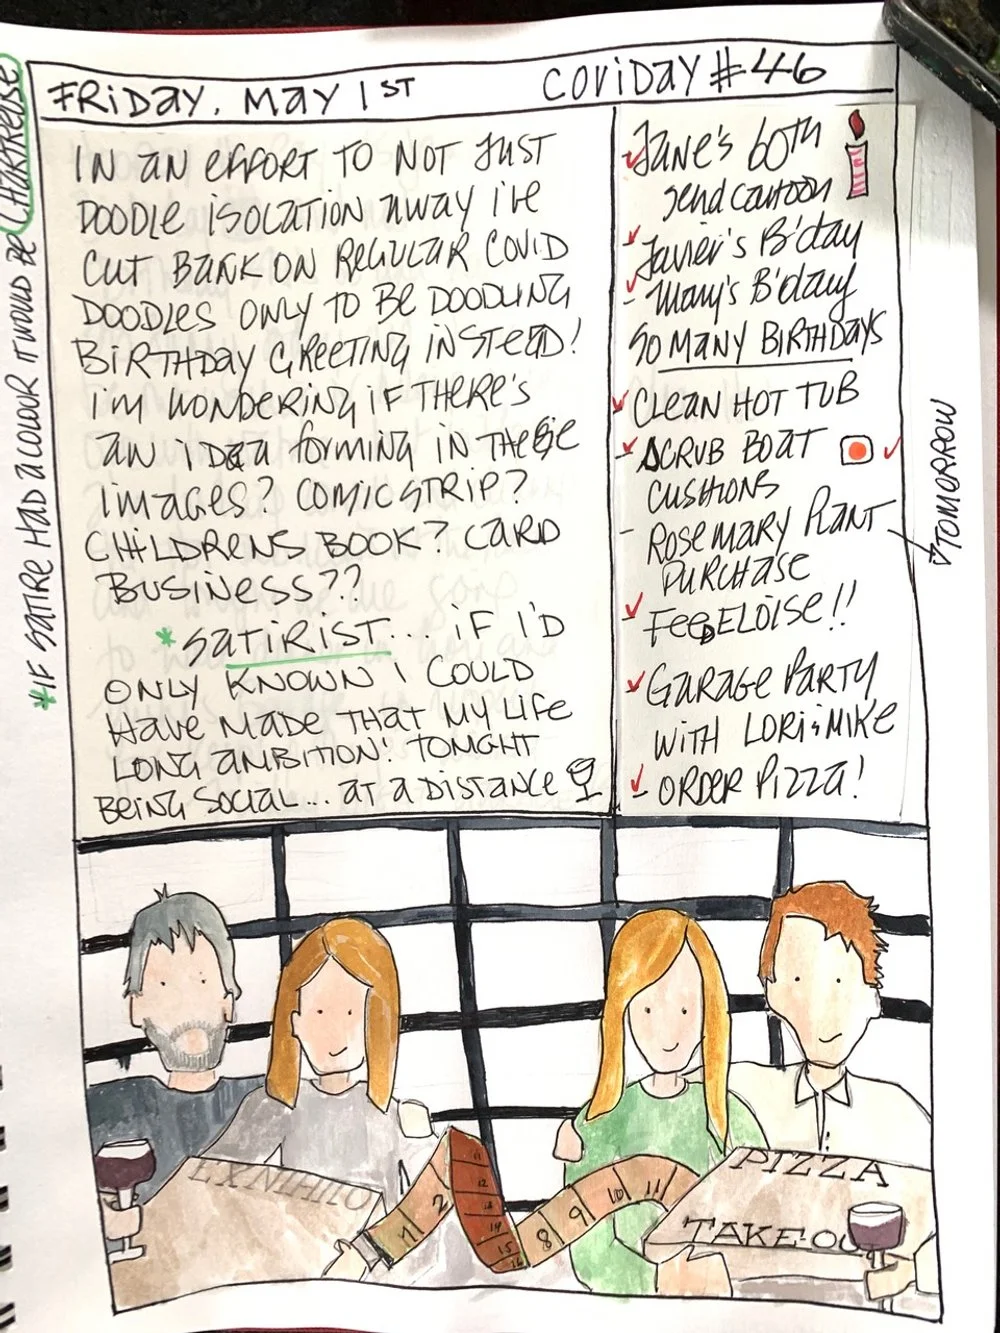 FRIDAY, MAY 1ST
COVIDAY #46
IN AN EFFORT TO NOT JUST
DOODLE ISOLATION AWAY I'VE
CUT BANK ON REGULAR COVID
DOODLES ONLY TO BE DOODLING
BIRTHDAY GREETING INSTEAD!
I'M WONDERING IF THERE'S
AN IDEA FORMING IN THESE
IMAGES? COMIC STRIP?
CHILDRENS BOOK? CARD
BUSINESS??
*SATIRIST... IF I'D
ONLY KNOWN I COULD
HAVE MADE THAT MY LIFE
LONG AMBITION! TONIGHT
BEING SOCIAL... AT A DISTANCE
JANE'S 60TH
SEND CARTOON
JAVIER'S B'DAY
- MARY'S B'DAY
SO MANY BIRTHDAYS
CLEAN HOT TUB
- SCRUB BOAT
CUSHIONS
- ROSEMARY PLANT
PURCHASE
TOMORROW
- FEED ELOISE!!
- GARAGE PARTY
WITH LORI & MIKE
- ORDER PIZZA!
*IF SATIRE HAD A COLOUR IT WOULD BE CHARTREUSE
EXNIHILO
1 2 11 12 13 14 15 16 8 9 10 11
PIZZA
TAKE-OU